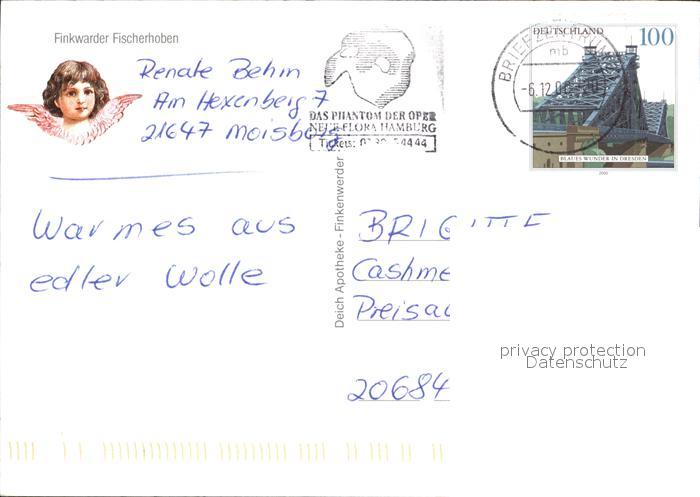 Finkwarder Fischerhoben
Renate Behm
Am Hexenberg 7
21647 Moisburg
DAS PHANTOM DER OPER
NEUE FLORA HAMBURG
Tickets:
BRIEFZENTRUM
mb
DEUTSCHLAND
100
BLAUES WUNDER IN DRESDEN
2000
Warmes aus
edler Wolle
Deich Apotheke - Finkenwerder
BRIGITTE
Cashme
Preisau
20684
privacy protection
Datenschutz